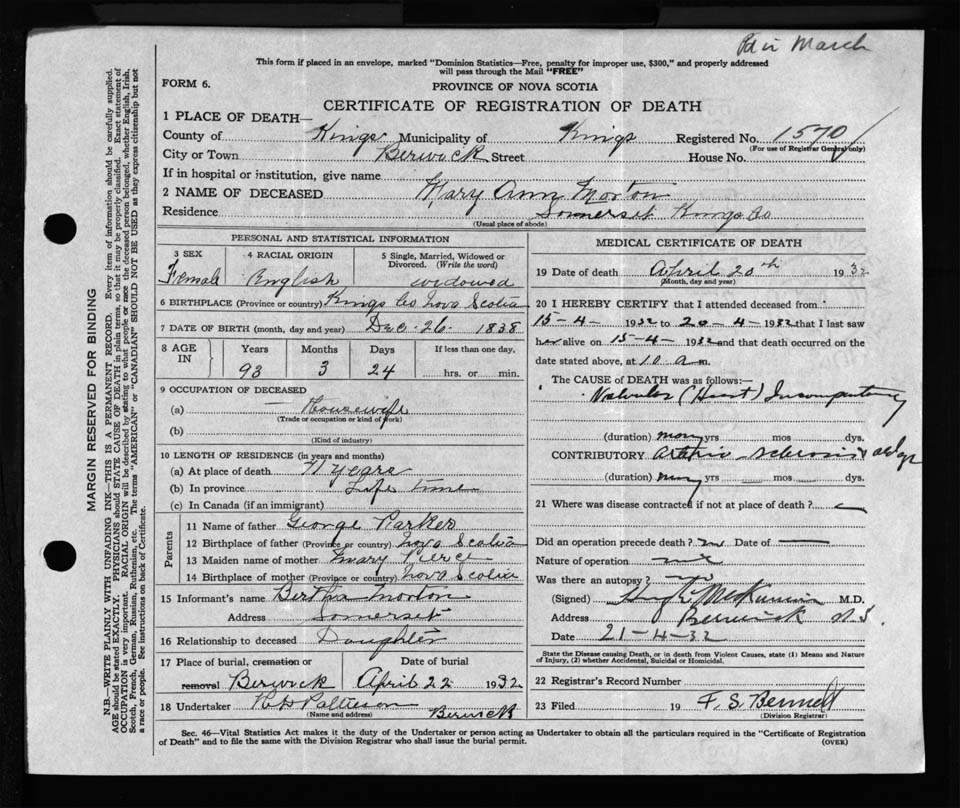 Pd in March
This form if placed in an envelope, marked "Dominion Statistics—Free, penalty for improper use, $300," and properly addressed
will pass through the Mail "FREE"
FORM 6.
PROVINCE OF NOVA SCOTIA
CERTIFICATE OF REGISTRATION OF DEATH
1 PLACE OF DEATH—
County of Kings Municipality of Kings Registered No. 1570
(For use of Registrar General only)
City or Town Berwick Street House No.
If in hospital or institution, give name
2 NAME OF DECEASED Mary Ann Morton
Residence Somerset Kings Co
(Usual place of abode)
PERSONAL AND STATISTICAL INFORMATION
3 SEX Female
4 RACIAL ORIGIN English
5 Single, Married, Widowed or Divorced. (Write the word) widowed
6 BIRTHPLACE (Province or country) Kings Co Nova Scotia
7 DATE OF BIRTH (month, day and year) Dec. 26 1838
8 AGE IN Years 93 Months 3 Days 24 If less than one day, hrs. or min.
9 OCCUPATION OF DECEASED
(a) Housewife
(Trade or occupation or kind of work)
(b)
(Kind of industry)
10 LENGTH OF RESIDENCE (in years and months)
(a) At place of death 71 years
(b) In province Life time
(c) In Canada (if an immigrant)
Parents
11 Name of father George Parker
12 Birthplace of father (Province or country) Nova Scotia
13 Maiden name of mother Mary Pierce
14 Birthplace of mother (Province or country) Nova Scotia
15 Informant's name Bertha Morton
Address Somerset
16 Relationship to deceased Daughter
17 Place of burial, cremation or removal Berwick
Date of burial April 22 1932
18 Undertaker Berwick
(Name and address)
MEDICAL CERTIFICATE OF DEATH
19 Date of death April 20th 1932
(Month, day and year)
20 I HEREBY CERTIFY that I attended deceased from
15-4- 1932 to 20-4-1932 that I last saw
her alive on 15-4- 1932 and that death occurred on the
date stated above, at 10 a m.
The CAUSE OF DEATH was as follows:—
Valvular (Heart) Incompetency
(duration) many yrs mos dys.
CONTRIBUTORY Arterio-sclerosis & old age
(duration) many yrs. mos. dys.
21 Where was disease contracted if not at place of death? —
Did an operation precede death? no Date of —
Nature of operation
Was there an autopsy? no
(Signed) M.D.
Address Berwick N.S.
Date 21-4-32
State the Disease causing Death, or in death from Violent Causes, state (1) Means and Nature
of Injury, (2) whether Accidental, Suicidal or Homicidal.
22 Registrar's Record Number
23 Filed 19 F. S. Bennett
(Division Registrar)
Sec. 46—Vital Statistics Act makes it the duty of the Undertaker or person acting as Undertaker to obtain all the particulars required in the "Certificate of Registration
of Death" and to file the same with the Division Registrar who shall issue the burial permit. (OVER)
MARGIN RESERVED FOR BINDING
N.B.—WRITE PLAINLY WITH UNFADING INK—THIS IS A PERMANENT RECORD. Every item of information should be carefully supplied.
AGE should be stated EXACTLY. PHYSICIANS should STATE CAUSE OF DEATH in plain terms, so that it may be properly classified. Exact statement of
OCCUPATION is very important. RACIAL ORIGIN will be described by stating to what people or race the deceased person belonged, whether English, Irish,
Scotch, French, German, Russian, Ruthenian, etc. The terms "AMERICAN" or "CANADIAN" SHOULD NOT BE USED as they express citizenship but not
a race or people. See instructions on back of Certificate.